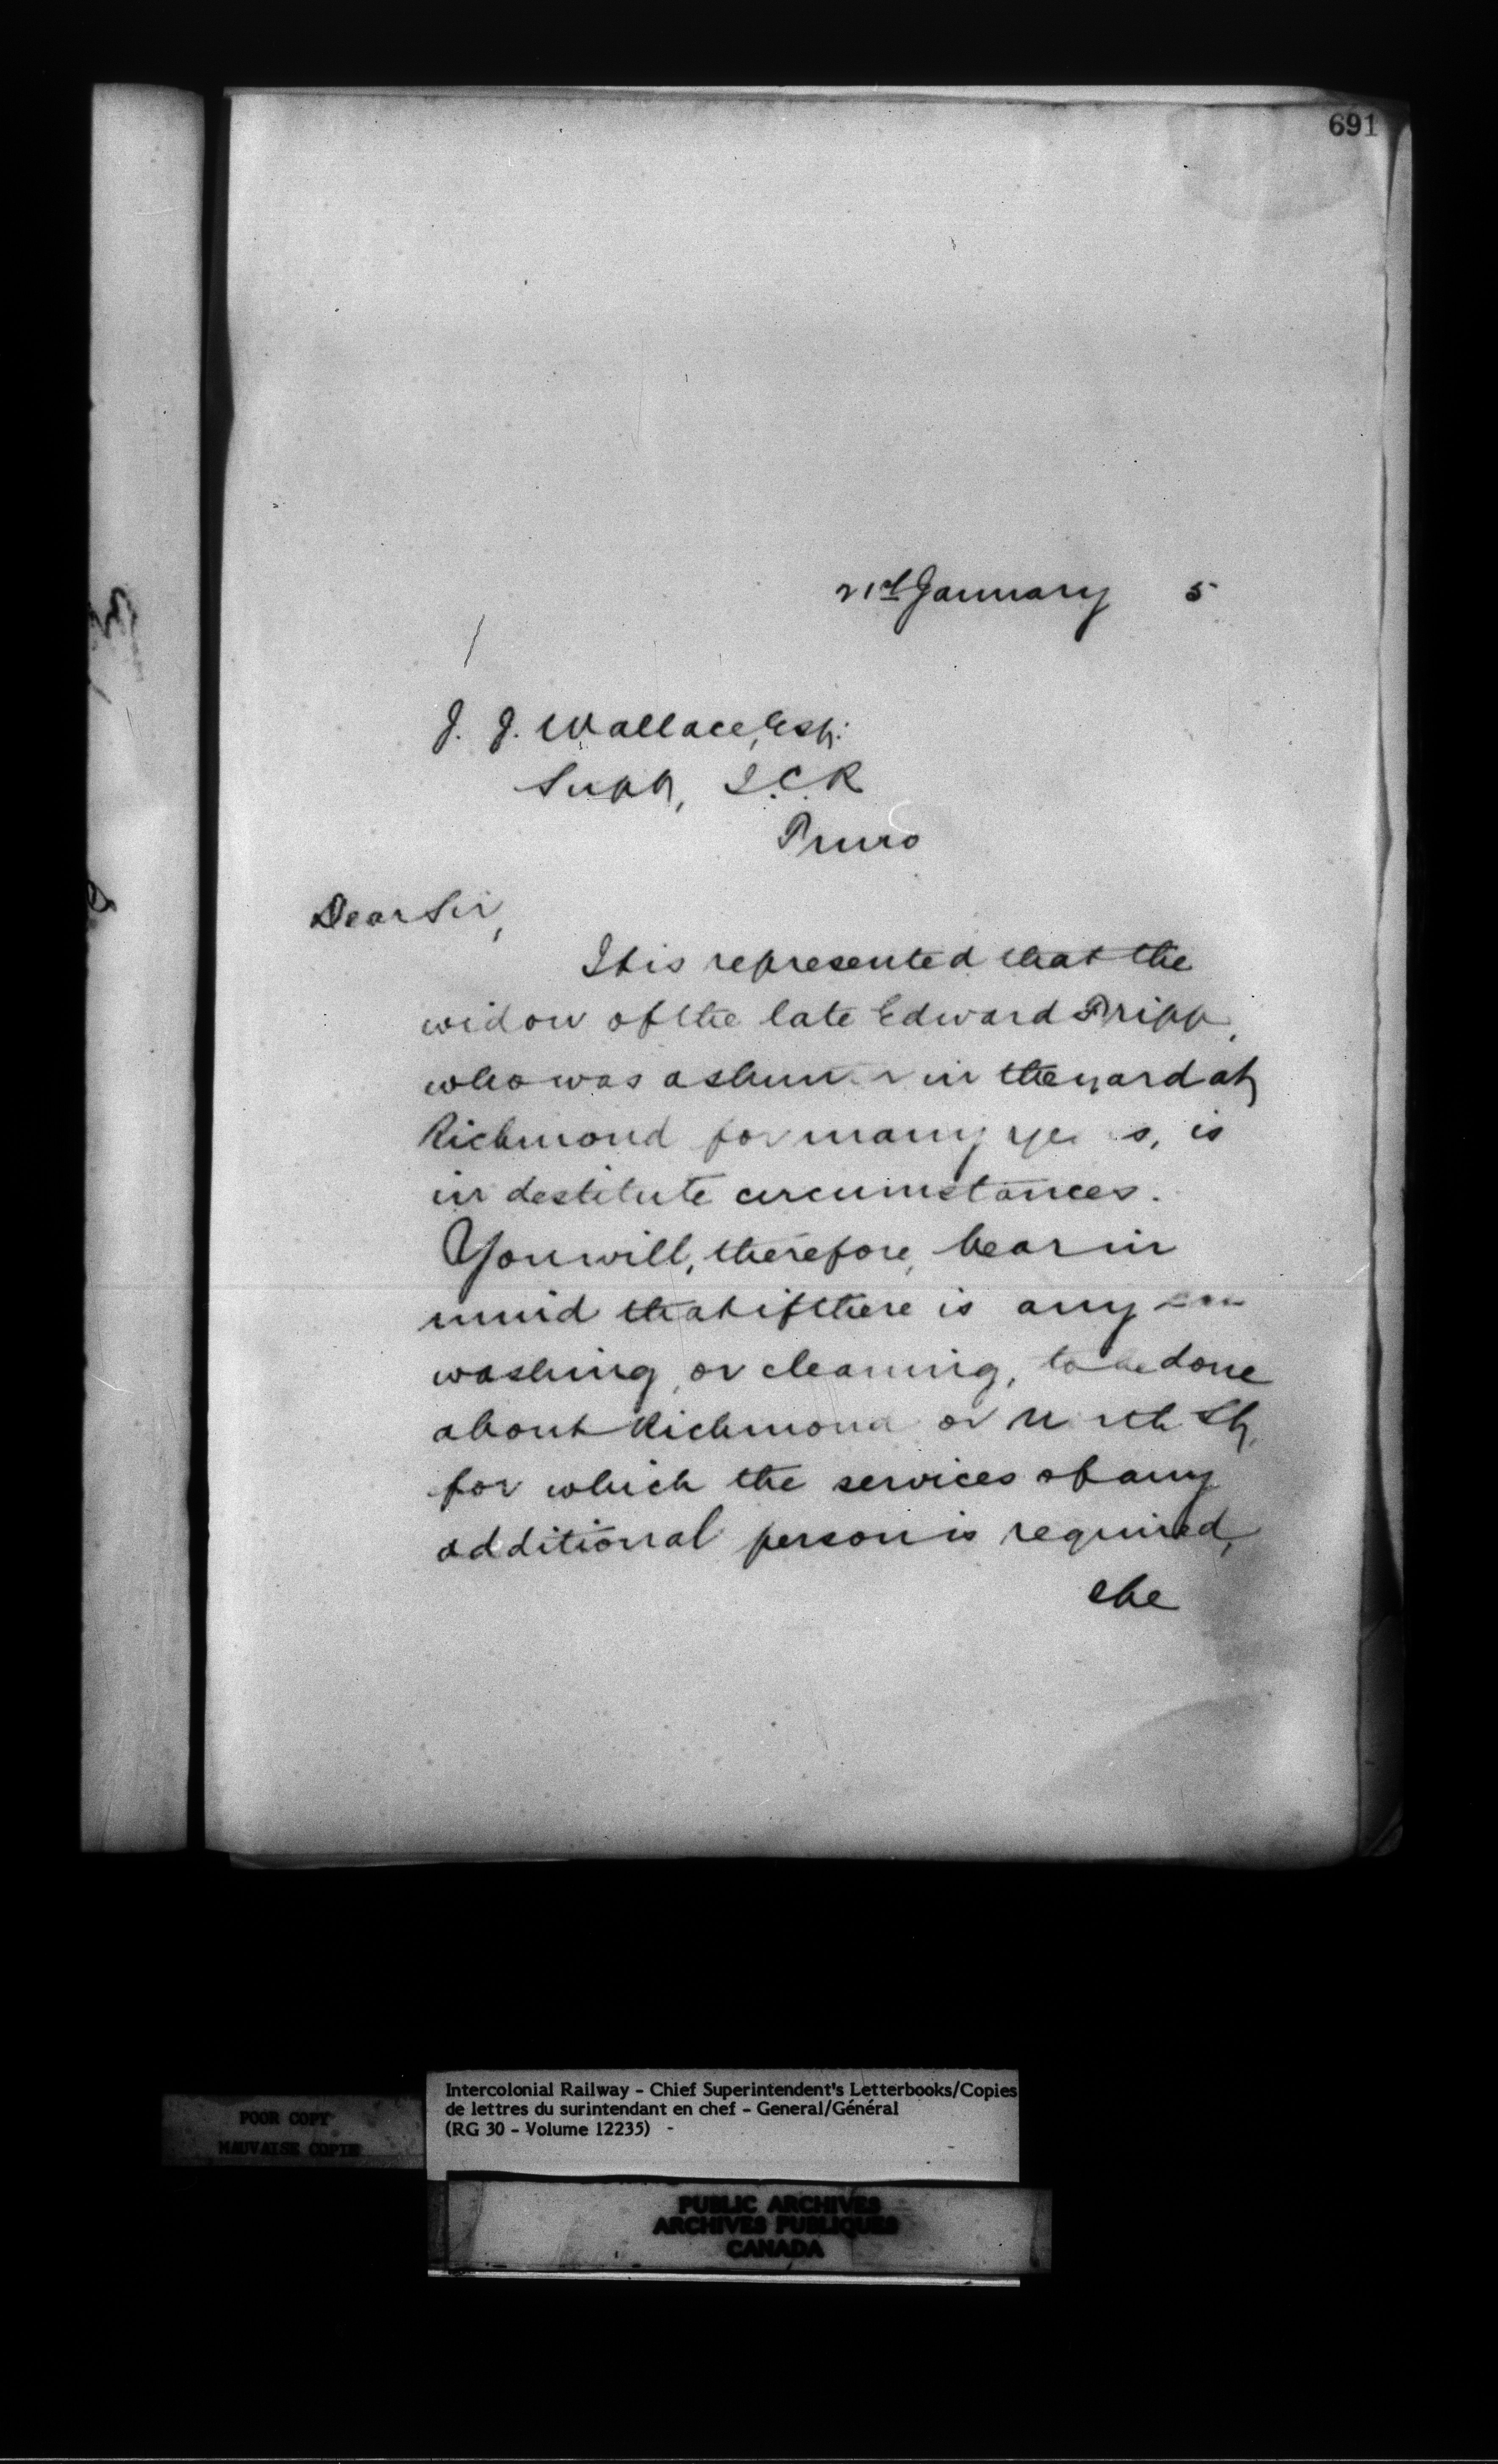 691
21st January 5
J. J. Wallace, Esq.
Supt, I.C.R
Truro
Dear Sir,
It is represented that the
widow of the late Edward Tripp,
who was a shunter in the yard at
Richmond for many years, is
in destitute circumstances.
You will, therefore, bear in
mind that if there is any
washing, or cleaning, to be done
about Richmond or North St,
for which the services of any
additional person is required,
she
POOR COPY
MAUVAISE COPIE
Intercolonial Railway - Chief Superintendent's Letterbooks/Copies
de lettres du surintendant en chef - General/Général
(RG 30 - Volume 12235) -
PUBLIC ARCHIVES
ARCHIVES PUBLIQUES
CANADA